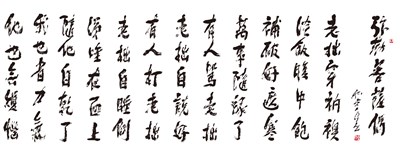 弥勒菩薩偈
老拙穿衲襖
淡飯腹中飽
補破好遮寒
萬事隨緣了
有人罵老拙
老拙自說好
有人打老拙
老拙自睡倒
涕唾在面上
隨他自乾了
我也省力氣
他也無煩惱